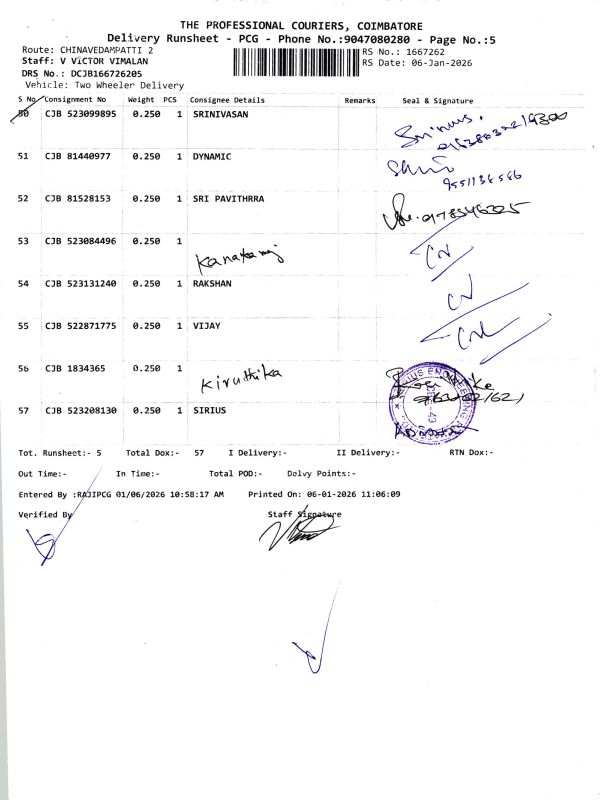 THE PROFESSIONAL COURIERS, COIMBATORE
Delivery Runsheet - PCG - Phone No.:9047080280 - Page No.:5
Route: CHINAVEDAMPATTI 2
RS No.: 1667262
Staff: V VICTOR VIMALAN
RS Date: 06-Jan-2026
DRS No.: DCJB166726205
Vehicle: Two Wheeler Delivery
S No Consignment No Weight PCS Consignee Details Remarks Seal & Signature
50 CJB 523099895 0.250 1 SRINIVASAN
51 CJB 81440977 0.250 1 DYNAMIC
9551136566
52 CJB 81528153 0.250 1 SRI PAVITHRRA
53 CJB 523084496 0.250 1
Kanakaraj
54 CJB 523131240 0.250 1 RAKSHAN
55 CJB 522871775 0.250 1 VIJAY
56 CJB 1834365 0.250 1
Kiruthika
57 CJB 523208130 0.250 1 SIRIUS
SIRIUS ENGINEERING
Tot. Runsheet:- 5 Total Dox:- 57 I Delivery:- II Delivery:- RTN Dox:-
Out Time:- In Time:- Total POD:- Delvy Points:-
Entered By :RAJIPCG 01/06/2026 10:58:17 AM Printed On: 06-01-2026 11:06:09
Verified By Staff Signature